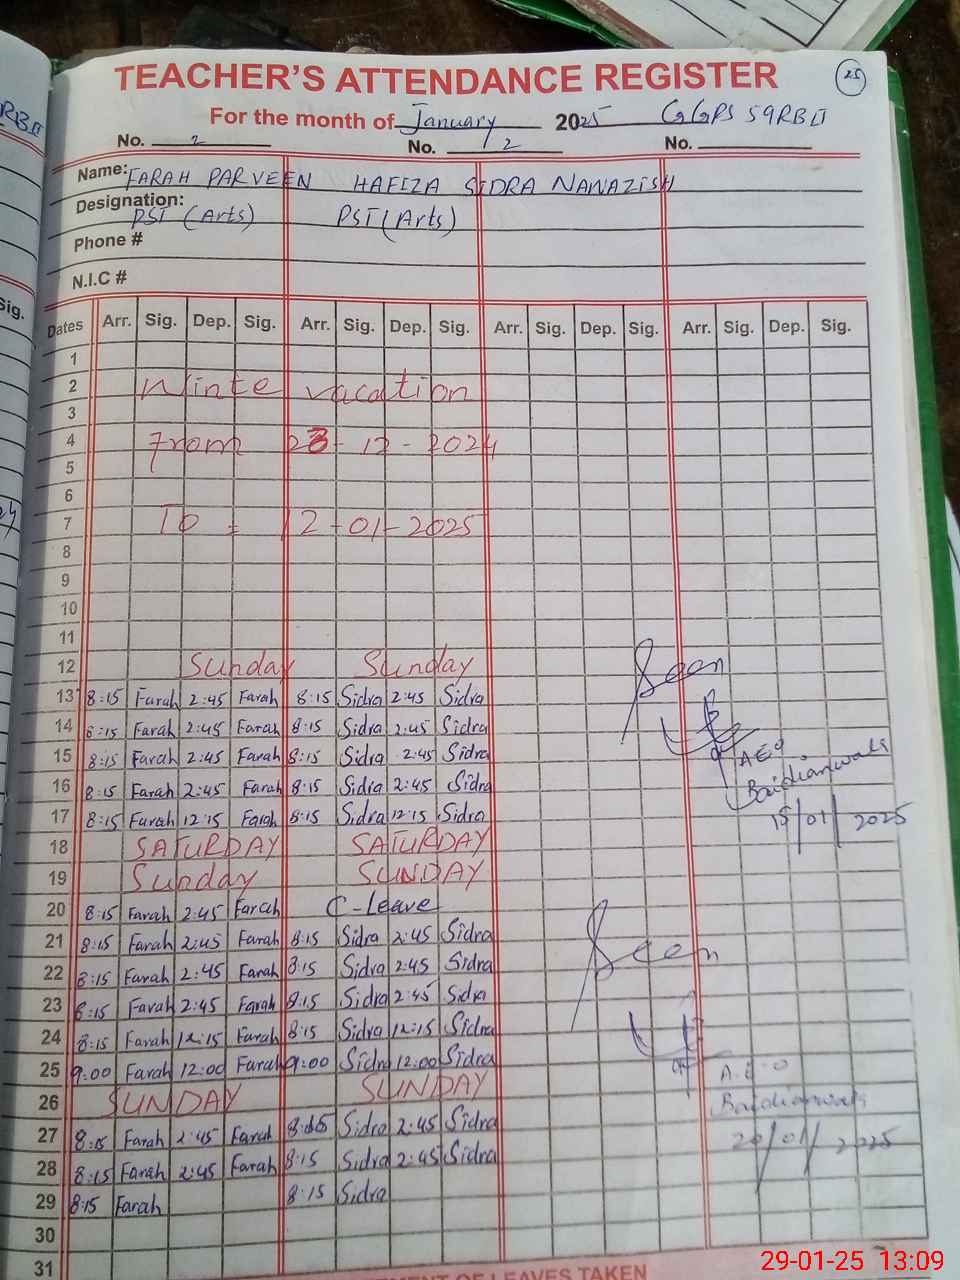 TEACHER'S ATTENDANCE REGISTER 25
For the month of January 2025 GGPS 59RBII
No. 2 No. 2 No.
Name: FARAH PARVEEN HAFIZA SIDRA NAWAZISH
Designation: PST (Arts) PST (Arts)
Phone #
N.I.C #
Dates Arr. Sig. Dep. Sig. Arr. Sig. Dep. Sig. Arr. Sig. Dep. Sig. Arr. Sig. Dep. Sig.
1
2 Winte vacation
3
4 From 23-12-2024
5
6
7 To = 12-01-2025
8
9
10
11
12 Sunday Sunday Seen
13 8:15 Farah 2:45 Farah 8:15 Sidra 2:45 Sidra
14 8:15 Farah 2:45 Farah 8:15 Sidra 2:45 Sidra
15 8:15 Farah 2:45 Farah 8:15 Sidra 2:45 Sidra AEO
16 8:15 Farah 2:45 Farah 8:15 Sidra 2:45 Sidra Baidianwala
17 8:15 Farah 12:15 Farah 8:15 Sidra 12:15 Sidra 15/01/2025
18 SATURDAY SATURDAY
19 Sunday SUNDAY
20 8:15 Farah 2:45 Farah C-Leave
21 8:15 Farah 2:45 Farah 8:15 Sidra 2:45 Sidra Seen
22 8:15 Farah 2:45 Farah 8:15 Sidra 2:45 Sidra
23 8:15 Farah 2:45 Farah 8:15 Sidra 2:45 Sidra
24 8:15 Farah 12:15 Farah 8:15 Sidra 12:15 Sidra
25 9:00 Farah 12:00 Farah 9:00 Sidra 12:00 Sidra A.E.O
26 SUNDAY SUNDAY Baidianwala
27 8:15 Farah 2:45 Farah 8:15 Sidra 2:45 Sidra
28 8:15 Farah 2:45 Farah 8:15 Sidra 2:45 Sidra
29 8:15 Farah 8:15 Sidra
30
31
OF LEAVES TAKEN
29-01-25 13:09